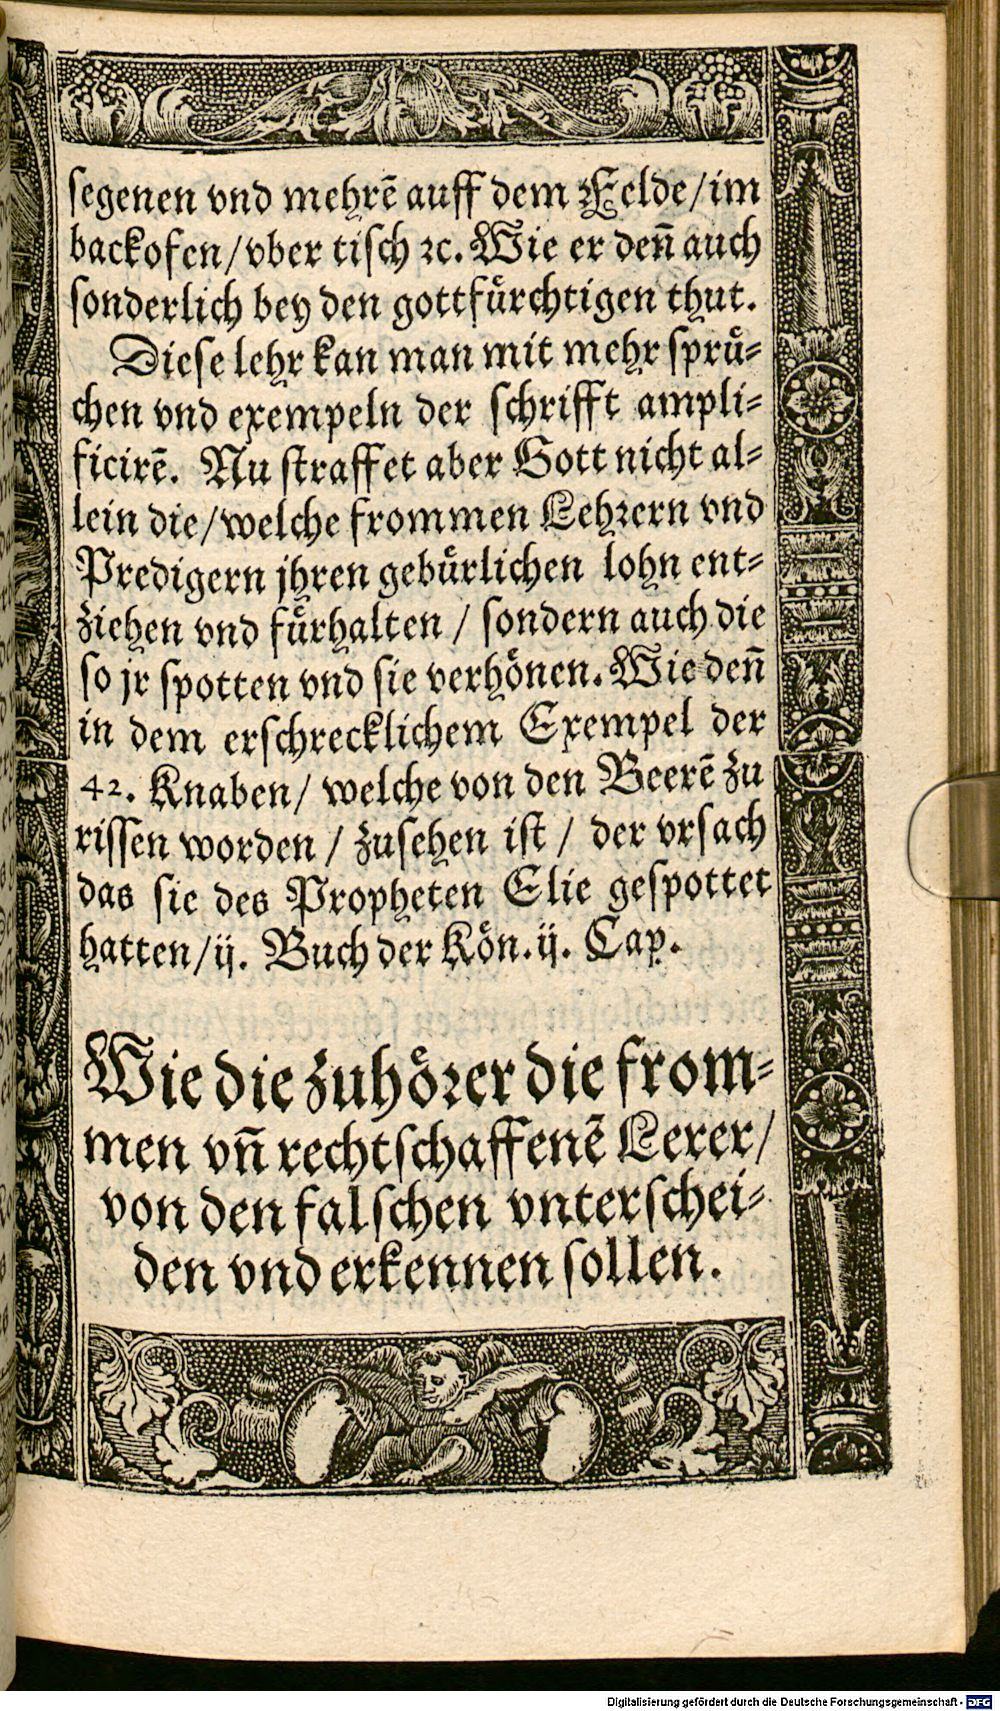 segenen vnd mehrẽ auff dem Felde/im
backofen/vber tisch ꝛc. Wie er deñ auch
sonderlich bey den gottfuͤrchtigen thut.
Diese lehr kan man mit mehr spruͤ-
chen vnd exempeln der schrifft ampli-
ficirẽ. Nu straffet aber Gott nicht al-
lein die/welche frommen Lehrern vnd
Predigern jhren gebuͤrlichen lohn ent-
ziehen vnd fuͤrhalten / sondern auch die
so jr spotten vnd sie verhoͤnen. Wie deñ
in dem erschrecklichem Exempel der
42. Knaben/ welche von den Beerẽ zu
rissen worden / zusehen ist / der vrsach
das sie des Propheten Elie gespottet
hatten/ij. Buch der Koͤn.ij. Cap.
Wie die zuhoͤrer die from-
men vñ rechtschaffenẽ Lerer/
von den falschen vnterschei-
den vnd erkennen sollen.
Digitalisierung gefördert durch die Deutsche Forschungsgemeinschaft - DFG